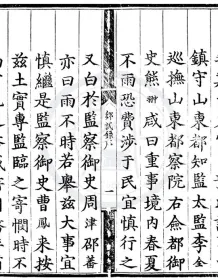 鎮守山東都知監太監李全
巡撫山東都察院右僉都御
史熊翀咸曰重事境內春夏
不雨恐費涉于民宜慎行之
鄉試錄序
一
又白於監察御史周津邵蕃
亦曰雨不時若舉茲大事宜
慎繼是監察御史曹鳳來按
茲土實專監臨之寄憫時不